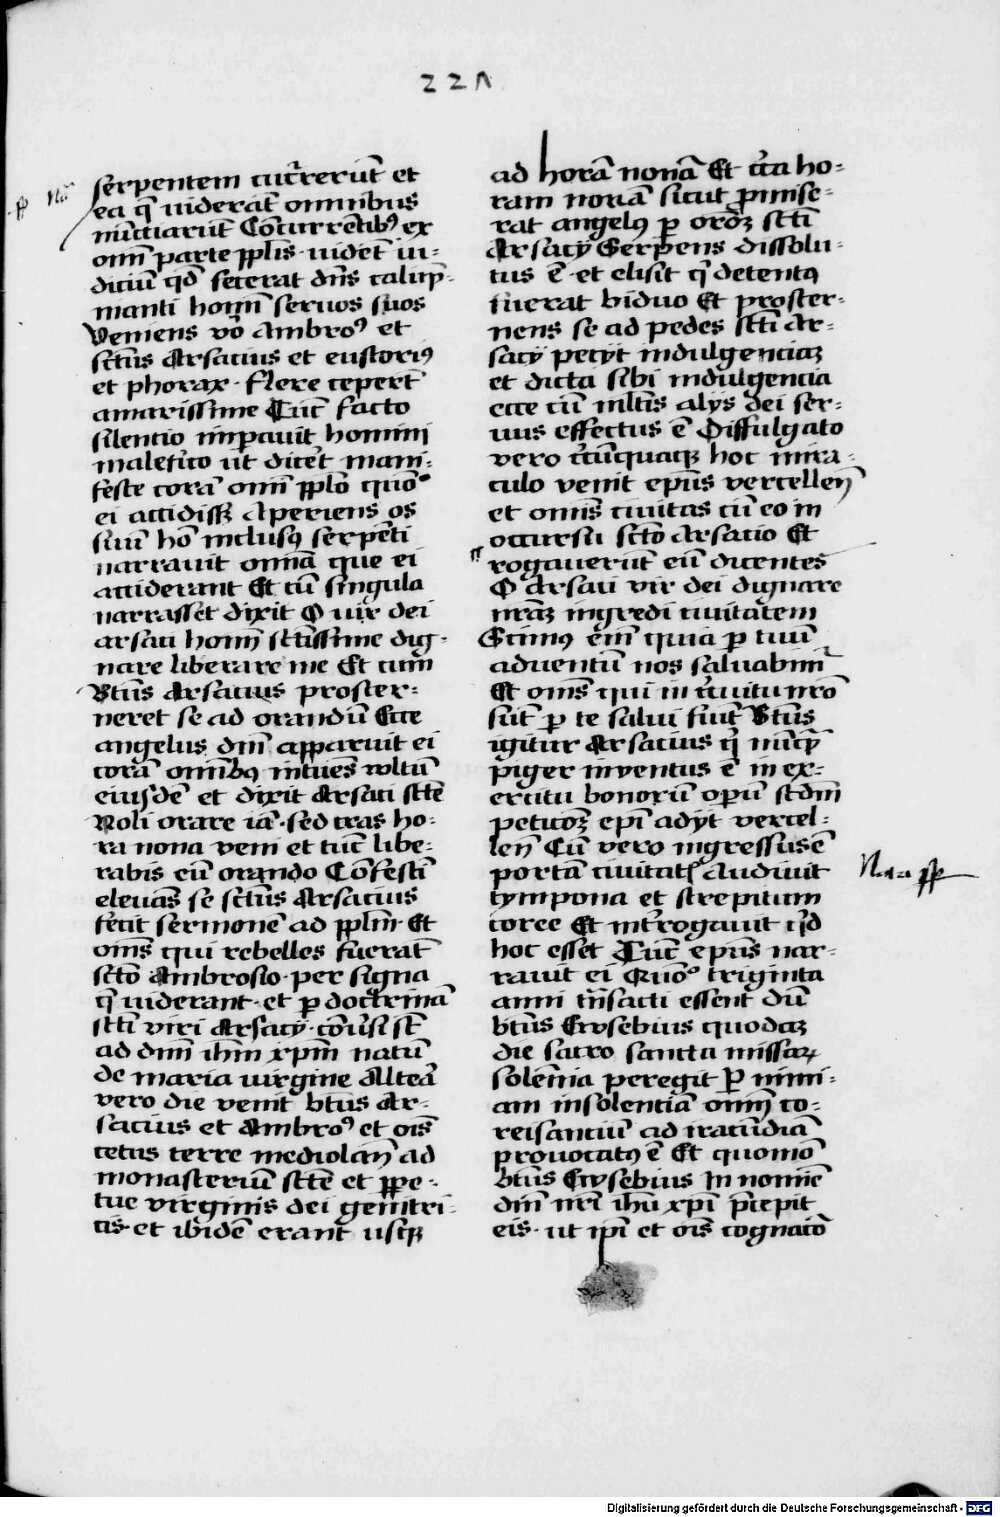 221
serpentem cucurrerūt et
ea q̄ uiderāt omnibus
nūciarūt Concurrētibꝰ ex
omī parte ppl̄is uidēt iu-
diciū qd̄ fecerat dn̄s calūp-
nianti homī seruos suos
Veniens vo Ambroꝰ et
sctūs Arsacius et eustoriꝰ
et phorax flere ceperūt
amarissime Tūc facto
silentio imperauit homini
malefico ut diceret mani-
feste corā omī pplō quōo
ei accidisset Aperiens os
suū hō inclusꝰ serpēti
narrauit omīa que ei
acciderant Et cū singula
narrasset dixit O vir dei
arsaci homī sctissime dig-
nare liberare me Et cum
Btūs Arsacius proster-
neret se ad orandū Ecce
angelus dn̄i apparuit ei
corā omībꝰ intuēs vultū
eiusdē et dixit Arsaci sctē
Noli orare iā sed cras ho-
ra nona veni et tūc libe-
rabis eū orando Confestī
eleuās se sctūs Arsacius
fecit sermonē ad pplm̄ Et
om̄s qui rebelles fuerāt
sctō Ambrosio per signa
q̄ uiderant et p doctrinā
sctī viri Arsacij cōuersi st̄
ad dn̄m ih̄m xp̄m natū
de maria uirgine Alteā
vero die venit btūs Ar-
sacius et Ambroꝰ et oīs
cetus terre mediolan̄ ad
monasteriū sctē et ppe-
tue virginis dei genitri-
cis et ibidē erant usqꝫ
ad horā nonā Et circa ho-
ram nonā sicut promise-
rat angelꝰ p oroēꝫ sctī
Arsacij Serpens dissolu-
tus ē et elisit q̄ detentꝰ
fuerat biduo Et proster-
nens se ad pedes sctī Ar-
sacij petijt indulgenciaꝫ
et dicta sibi indulgencia
ecce cū mltīs alijs dei ser-
uus effectus ē Diffulgato
vero circūquaqꝫ hoc mira-
culo venit ep̄us vercellen̄
et omīs ciuitas cū eo in
occursū sctō Arsacio Et
rogauerūt eū dicentes
O Arsaci vir dei dignare
nr̄aꝫ ingredi ciuitatem
Scimꝰ em̄ quia p tuū
aduentū nos saluabimur
Et om̄s qui in nr̄o
sūt p te salui fiūt Btūs
igitur Arsacius q̄ nūqꝫ
piger inventus ē in ex-
ercitu bonorū operū scdm̄
peticoēꝫ ep̄i adijt vercel-
len̄ Cū vero ingressus ē
portā ciuitatꝭ Audiuit
tympona et strepitum
coree Et interrogauit qd̄
hoc esset Tūc ep̄us nar-
rauit ei Quōo triginta
anni trāsacti essent dū
btūs Eusebius quodaꝫ
die sacro sancta missaꝝ
solēnia peregit p nimi-
am insolentiā omī co-
reisanciū ad iracūdiā
prouocatꝰ ē Et quomō
btūs Eusebius In nomīe
dn̄i nr̄i ih̄u xp̄i p̄cepit
eis ut ip̄i et oīs cognacō
Nota
Digitalisierung gefördert durch die Deutsche Forschungsgemeinschaft - DFG